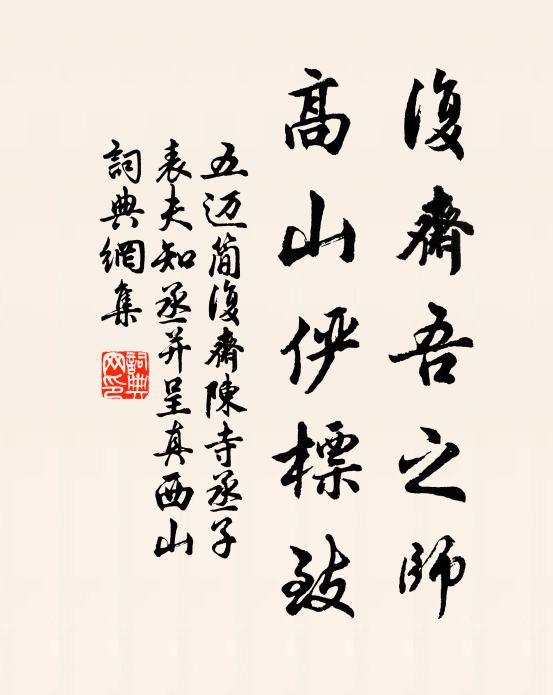 復齋吾之師
高山俨標致
五迈简復齋陳寺丞子
表夫知丞并呈真西山
詞典網集
詞典
网印